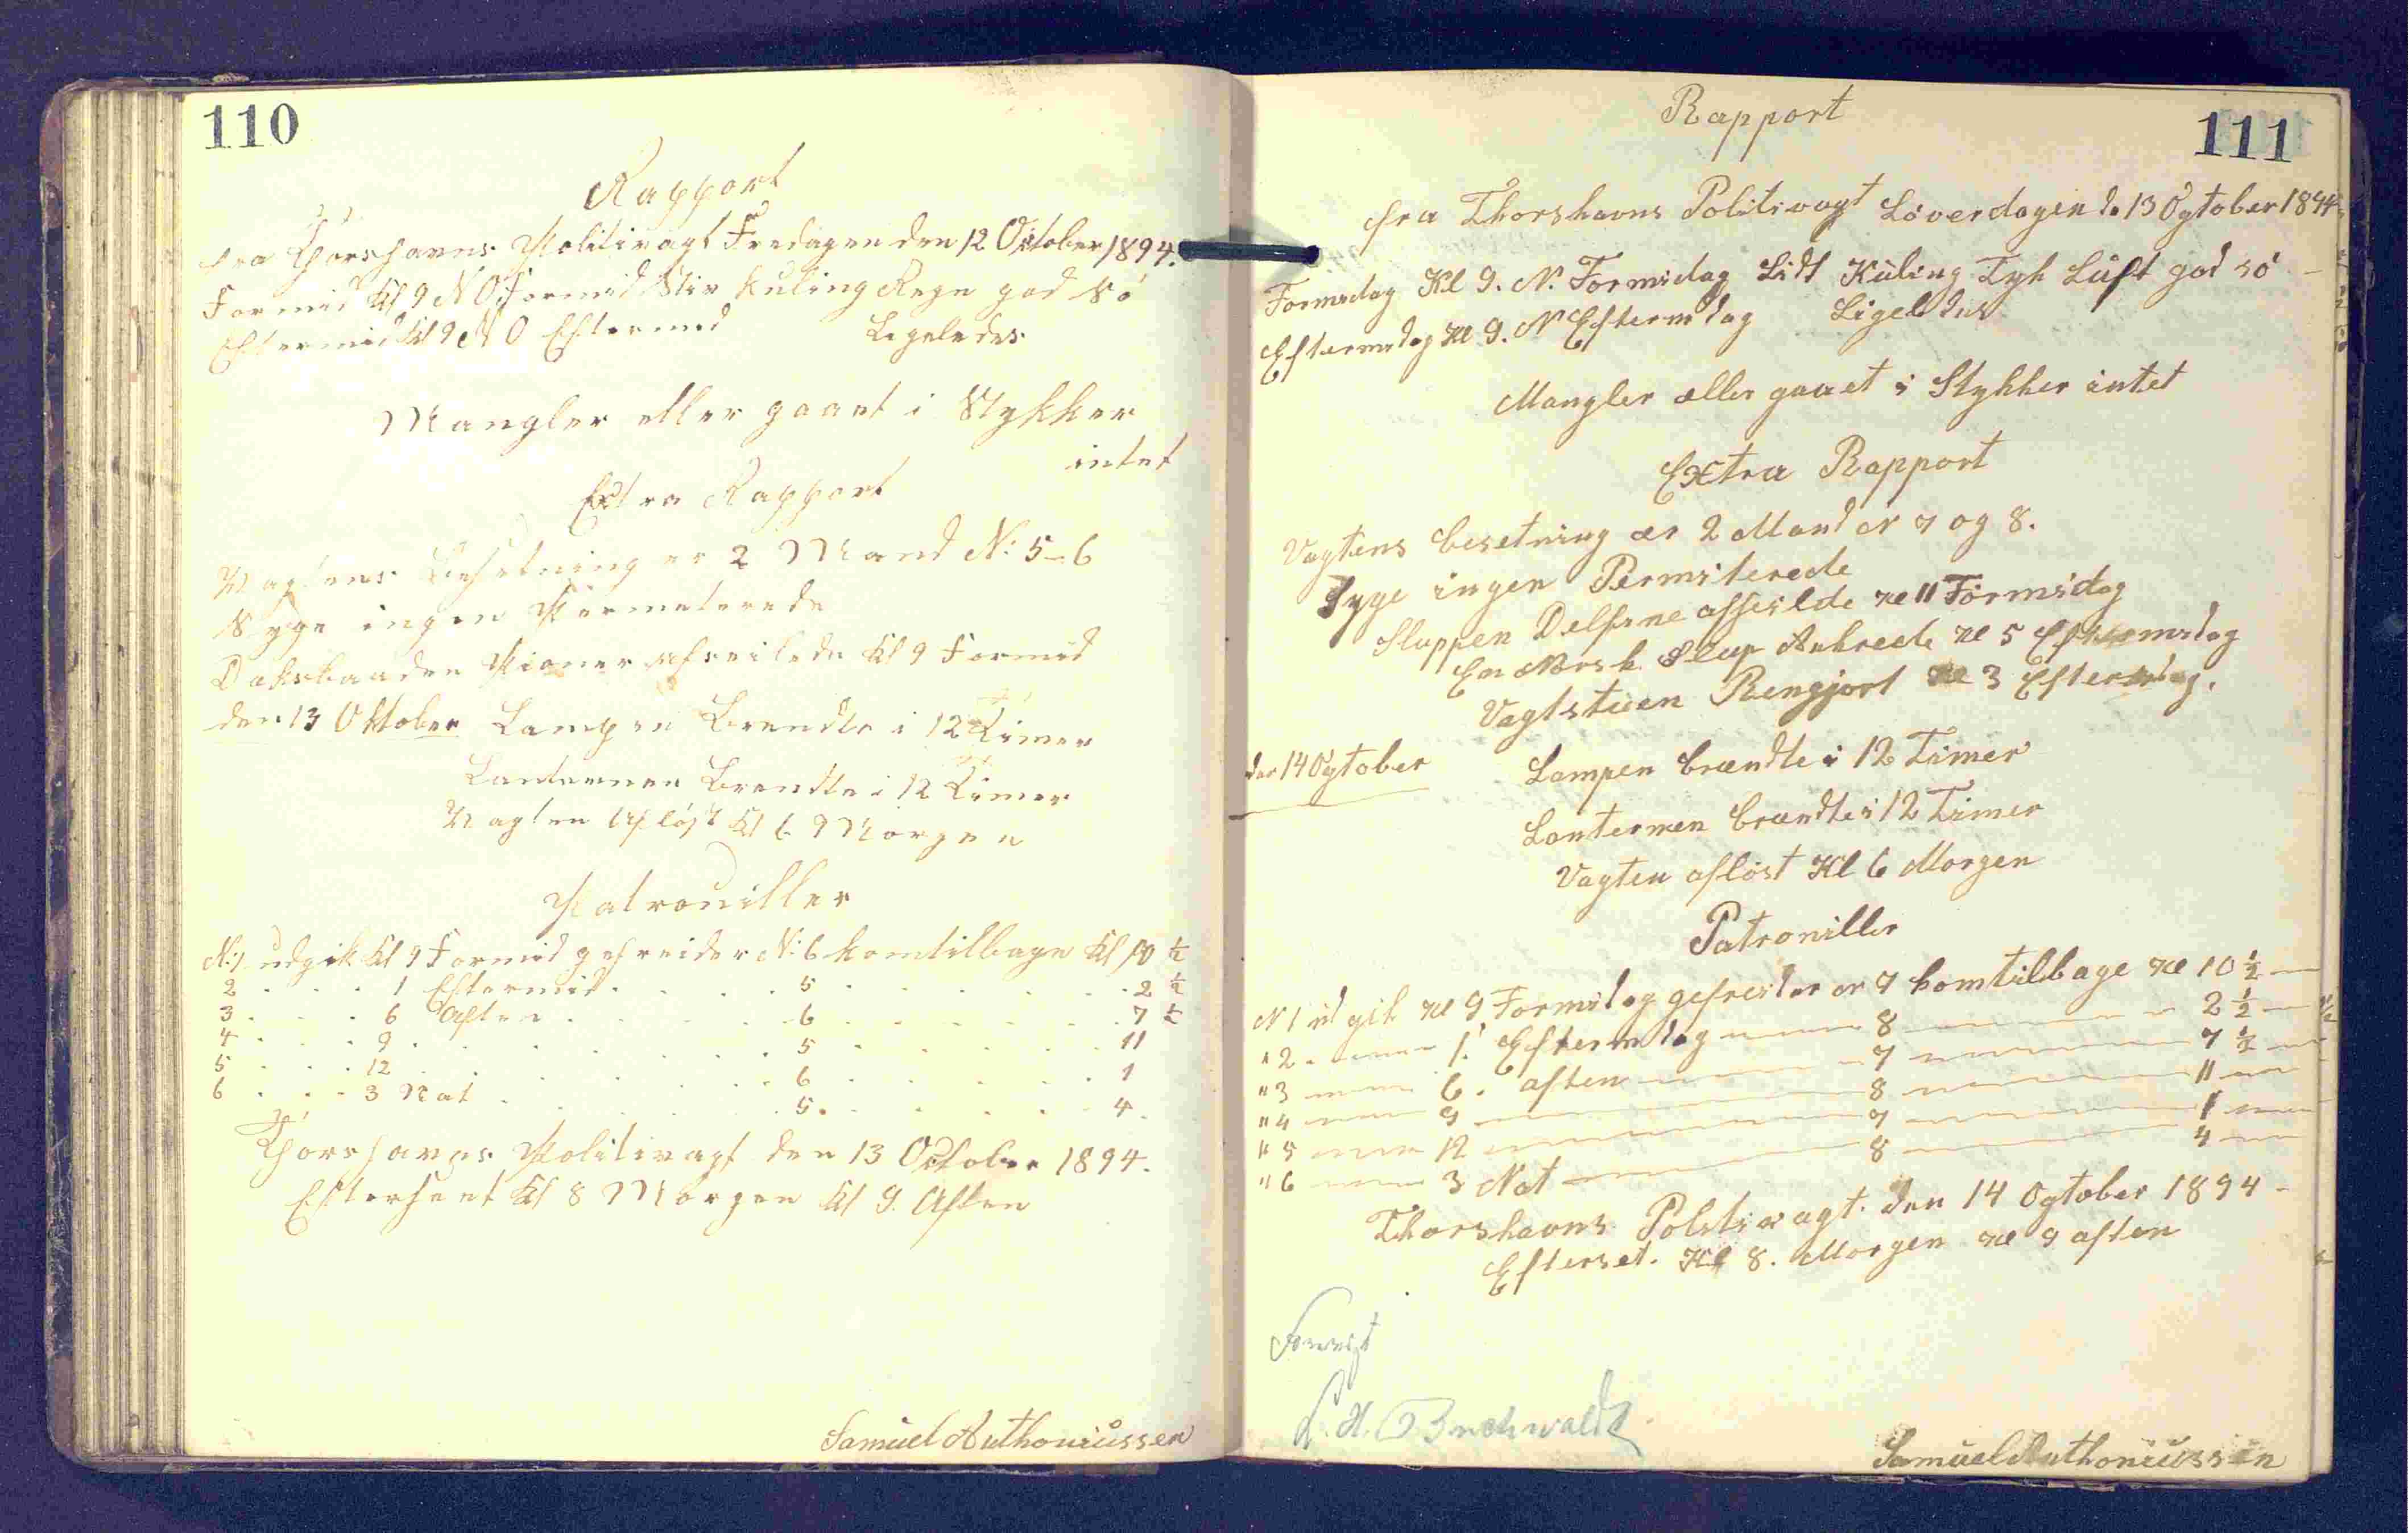 110
Rapport
fra Thorshavns Politivagt Fredagen den 12 October 1894.
Formid Kl 9 N O Formid Stiv Kuling Regn god Sö
Eftermid Kl 9 N O Eftermid Ligeledes
Mangler eller gaaet i Stykker
intet
Extra Rapport
Vagtens Besetning er 2 Mand N: 5-6
Syge ingen Permeterede
Daksbaaden Pioner afseilede Kl 9 Formid
den 13 Oktober Lampen Brendte i 12 Timer
Lanternen Brendte i 12 Timer
Vagten Aflöst Kl 6 Morgen
Patrouiller
N: 1 udgik Kl 9 Formid gefreider N: 6 kom tilbage Kl 10 ½
2 . . . 1 Eftermid . . . . 5 . . . . . . 2 ½
3 . . . 6 Aften . . . . . 6 . . . . . . 7 ½
4 . . . 9 . . . . . . 5 . . . . . . 11
5 . . . 12 . . . . . . 6 . . . . . . 1
6 . . . 3 Nat . . . . . 5 . . . . . . 4.
Thorshavns Politivagt den 13 October 1894.
Efterseet Kl 8 Morgen Kl 9. Aften
Samuel Anthoniussen
111
Rapport
fra Thorshavns Politivagt Löverdagen d. 13 Ogtober 1894
Formidag Kl 9. N. Formidag Lidt Kuling Tyk Luft god sö
Eftermidag Kl 9. N Eftermdag Ligeledes
Mangler eller gaaet i Stykker intet
Extra Rapport
Vagtens besetning er 2 Mand N 7 og 8.
Syge ingen Permiterede
Sluppen Delfine afseilde Kl 11 Formidag
En Norsk Slup Ankrede Kl 5 Eftermidag
Vagtstuen Rengjort Kl 3 Eftermdag.
den 14 Ogtober Lampen brændte i 12 Timer
Lanternen brændte i 12 Timer
Vagten aflöst Kl 6 Morgen
Patroniller
N 1 ud gik Kl 9 Formidag gefreider N 7 kom tilbage Kl 10 ½
" 2 . 1. Eftermdag 8 2 ½
" 3 6. aften 7 7 ½
" 4 9 8 11
" 5 12 7 1
" 6 3 Nat 8 4
Thorshavns Politivagt. den 14 Ogtober 1894
Efterset. Kl 8. Morgen Kl 9 aften
Forevist
L. H. Buchwaldt
Samuel Anthoniussen